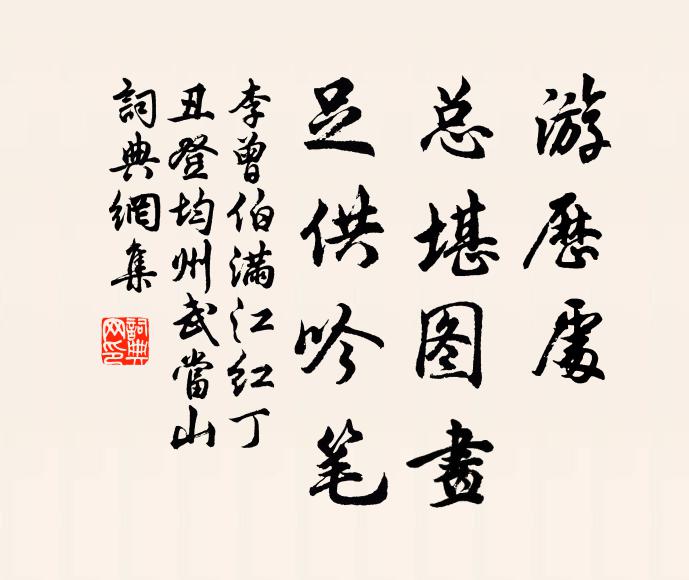 游歷處
总堪图畫
足供吟笔
李曾伯满江红丁
丑登均州武當山
詞典網集
詞典網印